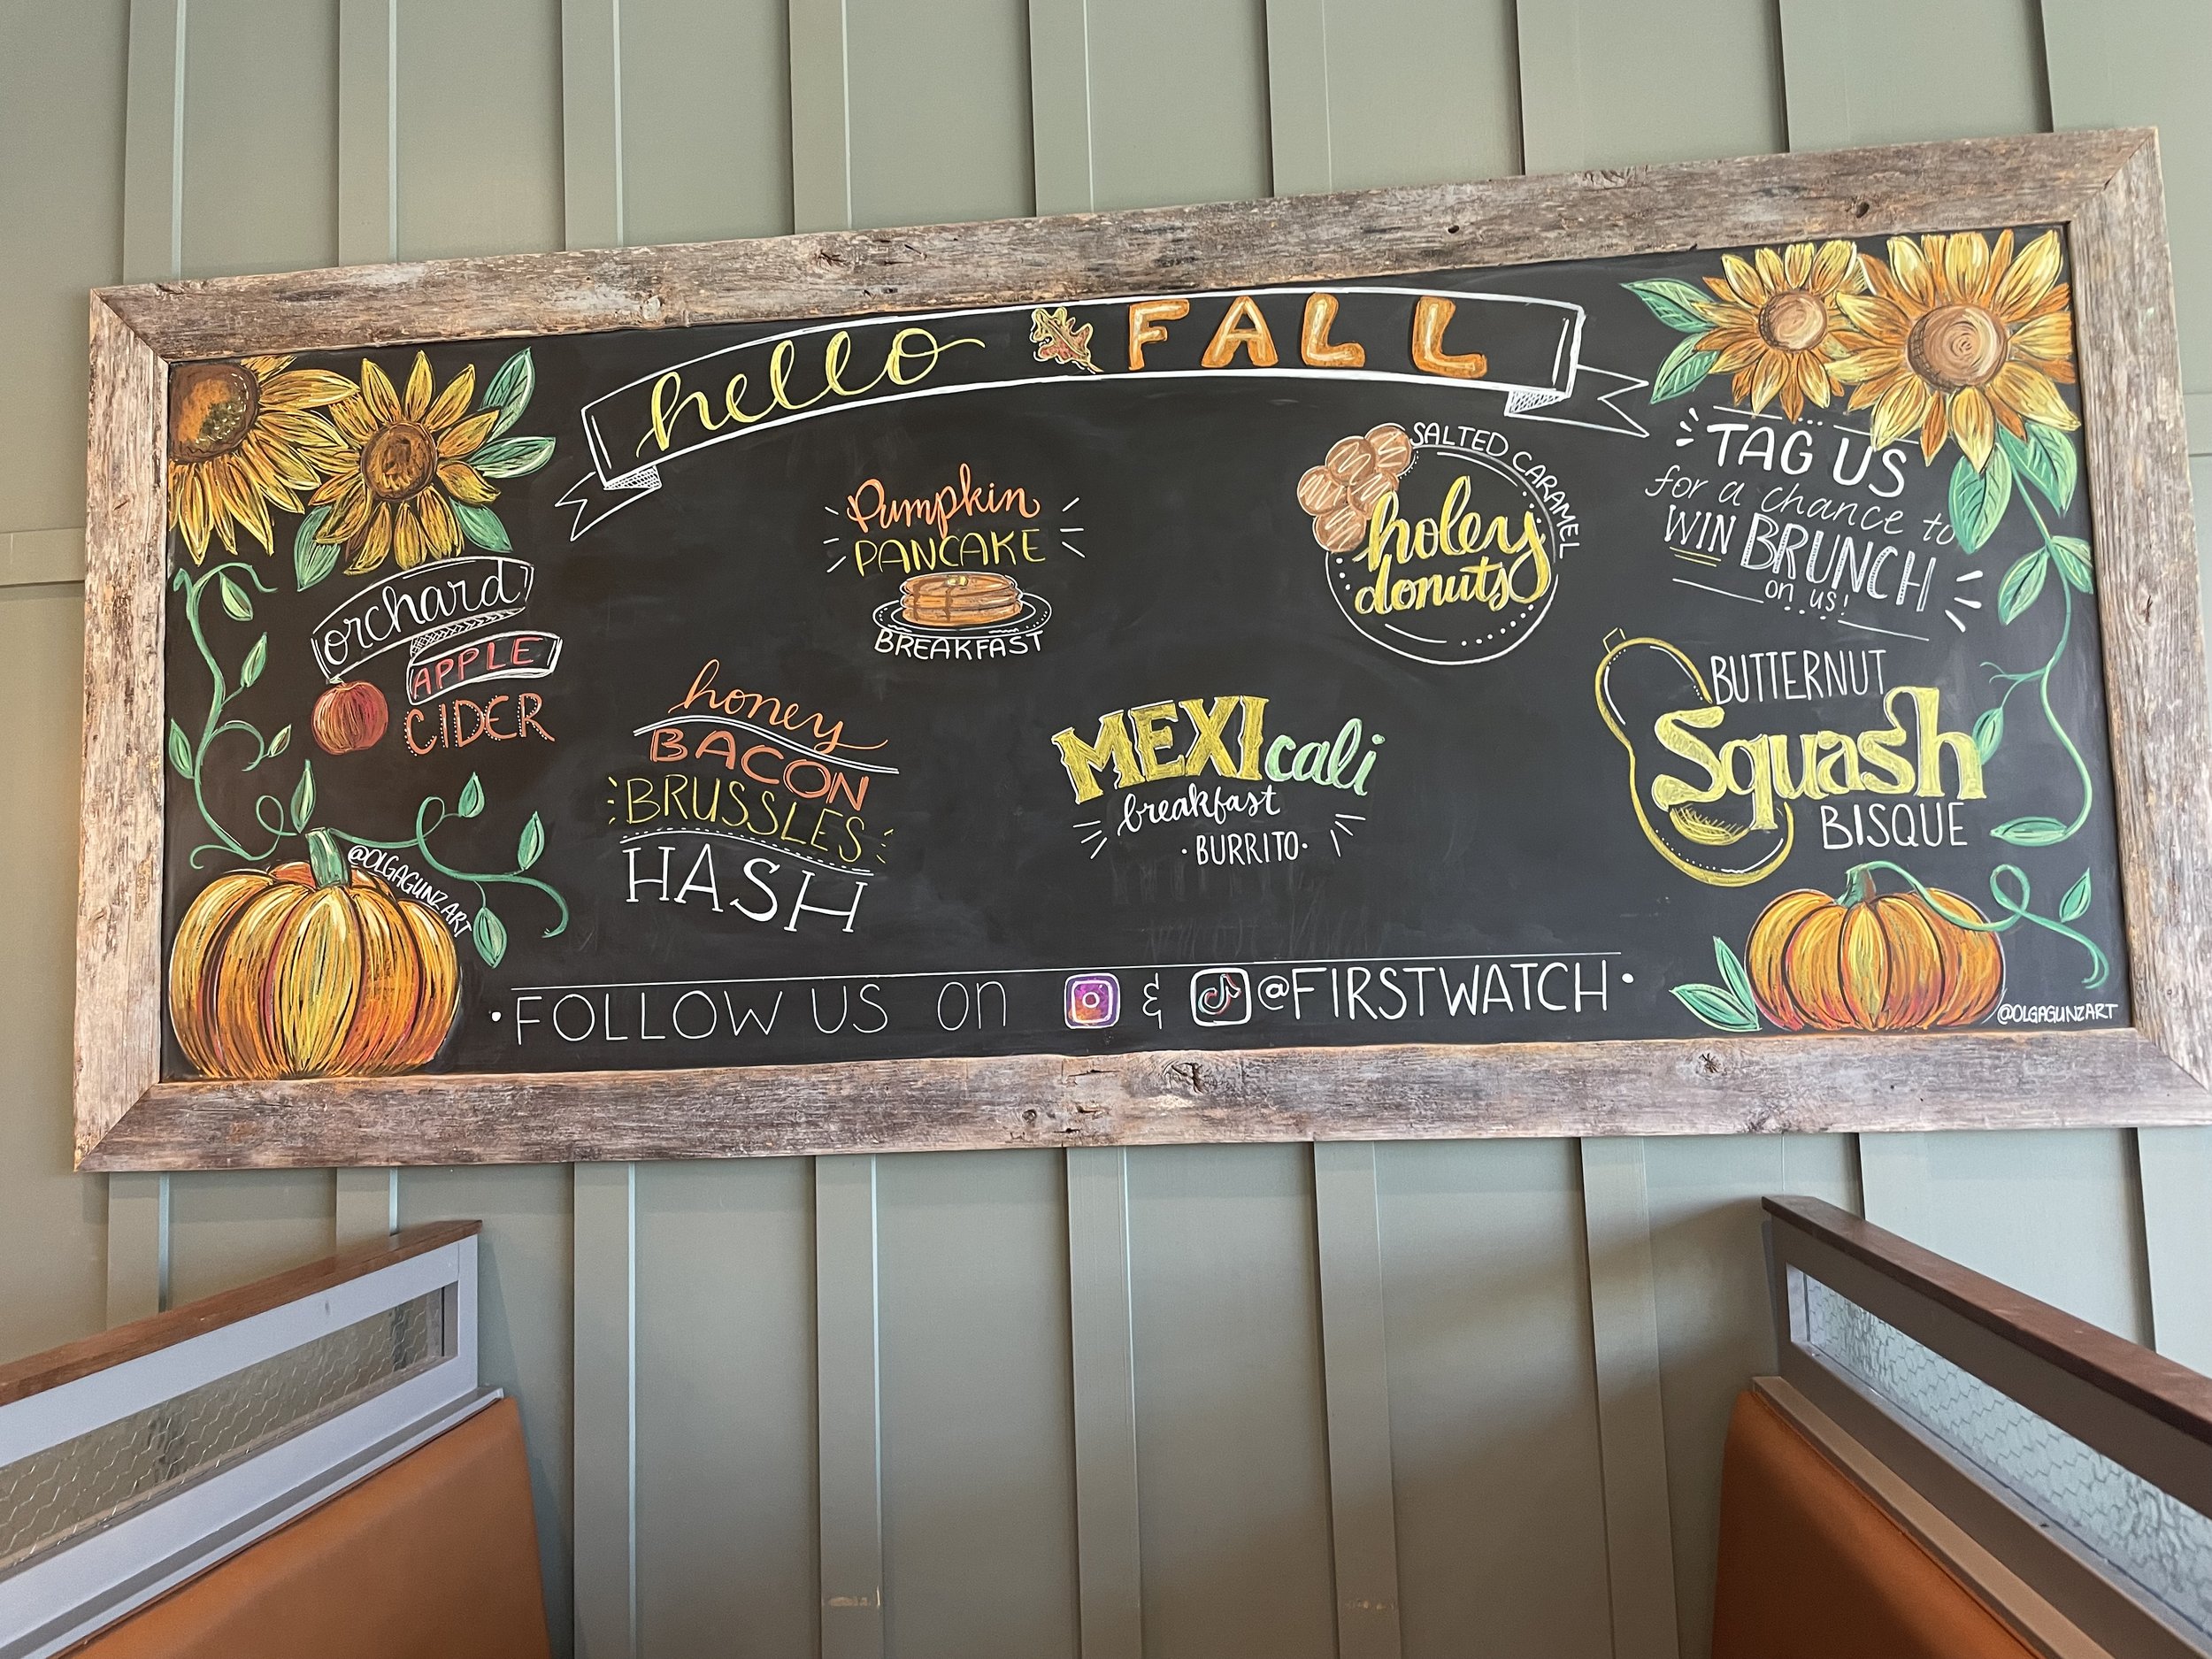 hello FALL
orchard
APPLE
CIDER
Pumpkin
PANCAKE
BREAKFAST
SALTED CARAMEL
holey
donuts
TAG US
for a chance to
WIN BRUNCH
on us!
honey
BACON
BRUSSLES
HASH
MEXIcali
breakfast
·BURRITO·
BUTTERNUT
Squash
BISQUE
@OLGAGUNZART
·FOLLOW US on & @FIRSTWATCH·
@OLGAGUNZART